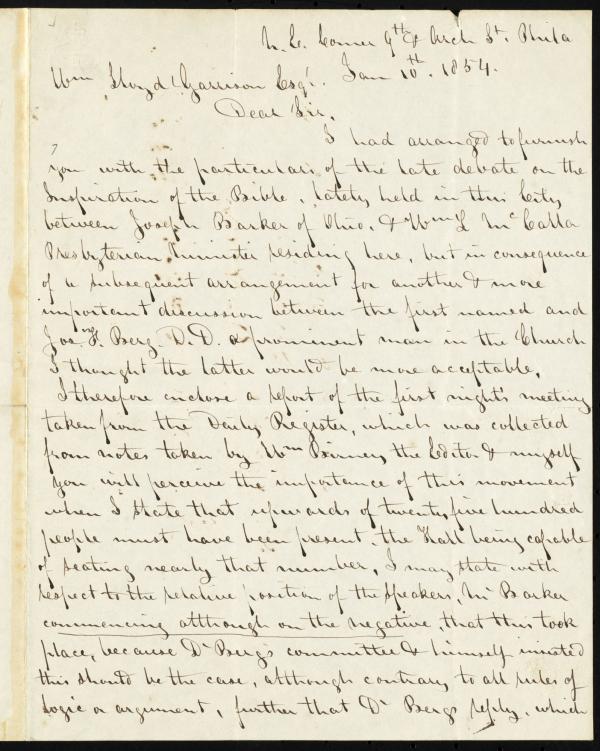 N. E. Corner 9th & Arch St. Phila
Jan 10th. 1854.
Wm Lloyd Garrison Esqr.
Dear Sir,
I had arranged to furnish
you with the particulars of the late debate on the
Inspiration of the Bible, lately held in this City
between Joseph Barker of Ohio, & Wm L McCalla
Presbyterian minister residing here, but in consequence
of a subsequent arrangement for another & more
important discussion between the first named and
Jos. F. Berg. D.D. a prominent man in the Church
I thought the latter would be more acceptable,
I therefore enclose a report of the first night's meeting
taken from the Daily Register, which was collected
from notes taken by Wm Birney the Editor & myself
you will perceive the importance of this movement
when I state that upwards of twenty five hundred
people must have been present, the Hall being capable
of seating nearly that number, I may state with
respect to the relative position of the speakers, Mr Barker
commencing although on the negative, that this took
place, because Dr Berg's committee & himself insisted
this should be the case, although contrary to all rules of
logic or argument, further that Dr Bergs reply, which